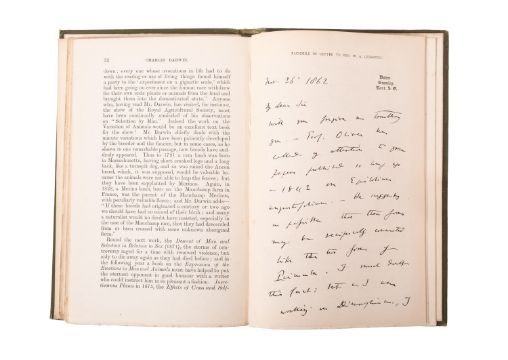 32 CHARLES DARWIN.
down, every one whose avocations in life had to do
with the rearing or use of living things found himself
a party to the "experiment on a gigantic scale," which
had been going on ever since the human race withdrew
for their own ends plants or animals from the feral and
brought them into the domesticated state." Anyone
who, having read Mr. Darwin, has visited, for instance,
the show of the Royal Agricultural Society, must
have been continually reminded of his observations
on "Selection by Man." Indeed the work on the
Variation of Animals would be an excellent text book
for the show. Mr. Darwin chiefly deals with the
minute variations which have been patiently developed
by the breeder and the fancier, but in some cases, as he
shows in one remarkable passage, new breeds have sud-
denly appeared. Thus in 1791 a ram lamb was born
in Massachusetts, having short crooked legs and a long
back, like a turnspit dog, and so was raised the Ancon
breed, which, it was supposed, would be valuable be-
cause the animals were not able to leap the fences; but
they have been supplanted by Merinos. Again, in
1828, a Merino lamb, born on the Mauchamp farm in
France, was the parent of the Mauchamp Merinos,
with peculiarly valuable fleeces; and Mr. Darwin adds—
"If these breeds had originated a century or two ago
we should have had no record of their birth; and many
a naturalist would no doubt have insisted, especially in
the case of the Mauchamp race, that they had descended
from or been crossed with some unknown aboriginal
form."
Round the next work, the Descent of Man and
Selection in Relation to Sex (1871), the storms of con-
troversy raged for a time with renewed violence, but
only to die away again as they had done before; and in
the following year a book on the Expression of the
Emotions in Man and Animals must have helped to put
the sternest opponent in good humour with a writer
who could instruct him in so pleasant a fashion. Insec-
tivorous Plants in 1875, the Effects of Cross and Self-
FACSIMILE OF LETTER TO REV. W. A. LEIGHTON.
Down
Bromley
Kent. S. E.
Nov. 26th 1862
My dear Sir
Will you forgive me troubling
you — Prof. Oliver has
called my attention to your
paper published so long ago
— 1842 on Epilobium
angustifolium. — He suggests
as possible that the two forms
may be reciprocally connected
like the two forms of
Primula. I much doubt
this fact; but as I am
working on Dimorphism, I